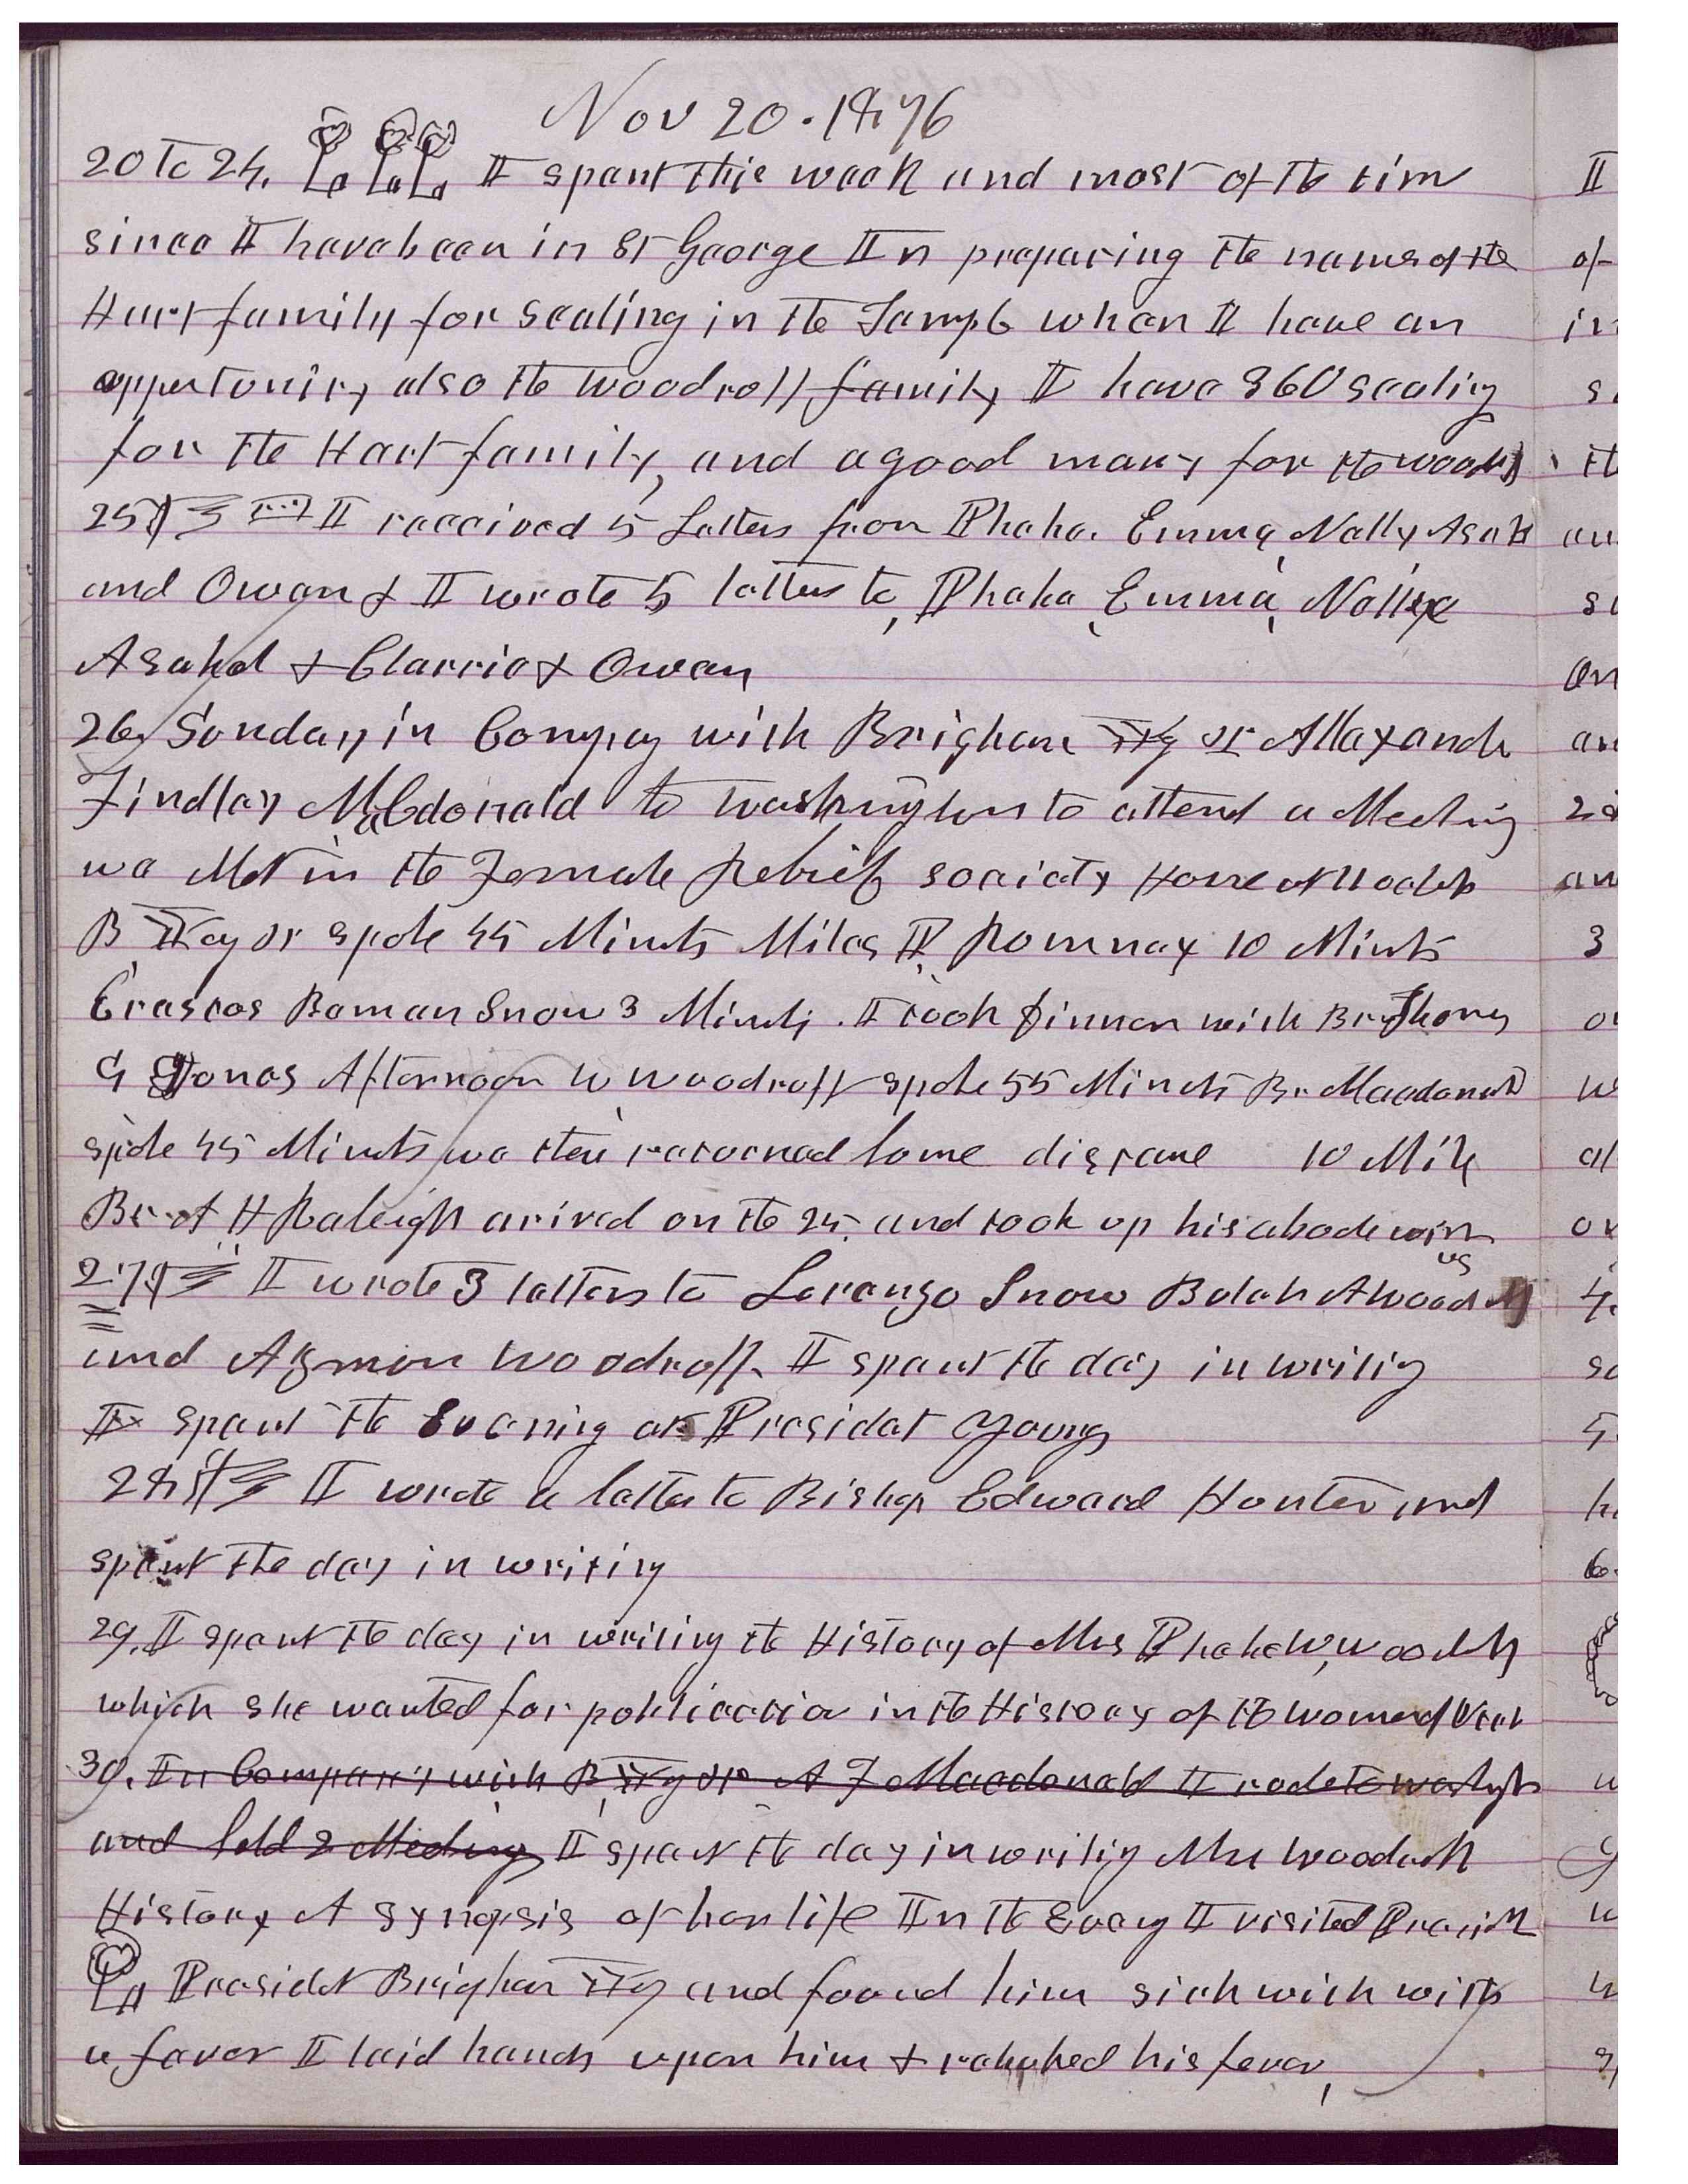 Nov 20. 1876
20 to 24. I spent this week and most of the time
since I have been in St George In preparing the names of the
Hart family for sealing in the Temple when I have an
oppertunity also the Woodruff family I have 360 sealing
for the Hart family, and a good many for the Woodruff
25 I received 5 Letters from Phebe. Emma, Nelly Asahel
and Owen & I wrote 5 letters to, Phebe, Emma, Nellie
Asahel & Clarrie & Owen
26, Sunday in Company with Brigham Yg Jr Allexander
Findlay McCdonald to Washington to attend a Meeting
we Met in the Female Relief Society House
B. Young Jr spoke 45 Minuts Miles P. Romney 10 Minuts
Erastus Beman Snow 3 Minuts. I took dinner with Br Thomas
Jones Afternoon W Woodruff spoke 55 Minuts Br Macdonald
spoke 45 Minuts we then returned home distance 10 Mile
Br A H Raleigh arived on the 25. and took up his abode with
us
27 I wrote 3 letters to Lorenzo Snow Bulah A Woodruff
and Azmon Woodruff. I spent the day in writing
I spent the Evening at President Youngs
28 I wrote a letter to Bishop Edward Hunter and
spent the day in writing
29. I spent the day in writing the History of Mrs Phebe W, Woodruff
which she wanted for publication in the History of the Women of Utah
30. In Company with B Yg Jr A F Macdonald I rode to Washington
and held 2 Meetings I spent the day in writing Mrs Woodruff
History A synopsis of her life In the Evening I visited Presidt
President Brigham Yg and found him sick with with
a fever I laid hands upon him & rebuked his fever,